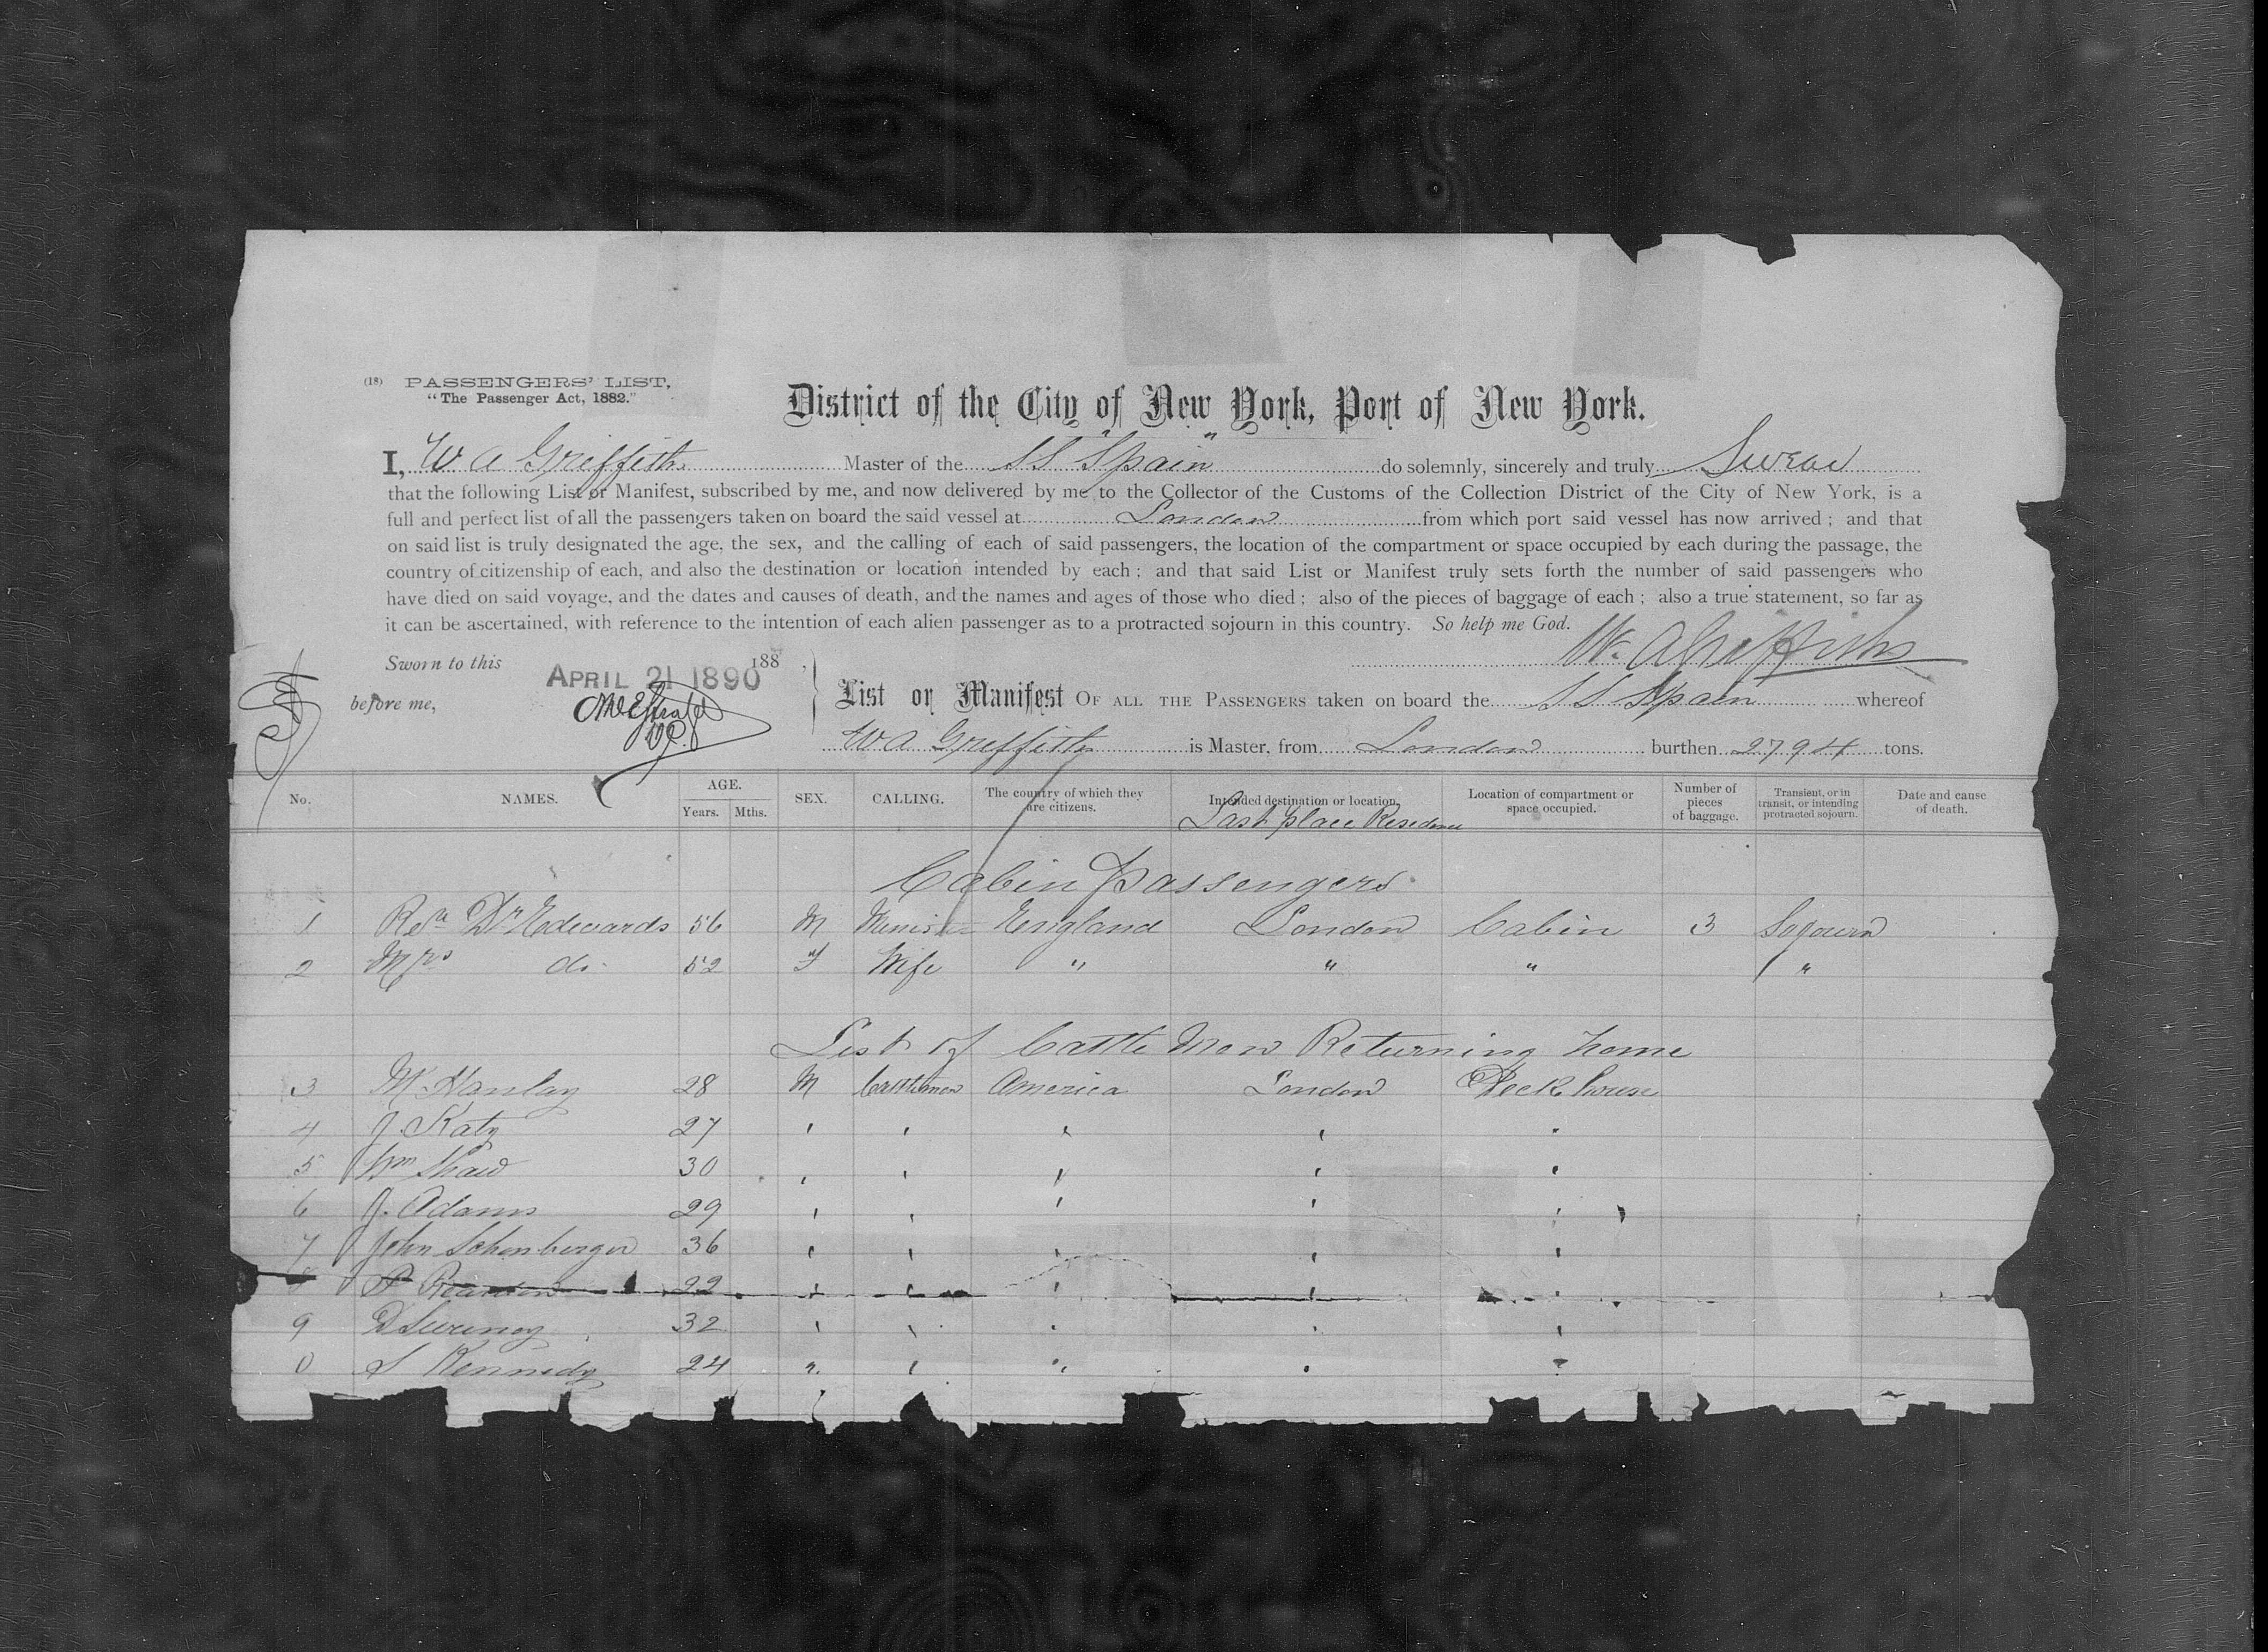 (18) PASSENGERS' LIST,
"The Passenger Act, 1882."
District of the City of New York, Port of New York.
I, W A Griffiths Master of the SS "Spain" do solemnly, sincerely and truly Swear
that the following List or Manifest, subscribed by me, and now delivered by me to the Collector of the Customs of the Collection District of the City of New York, is a
full and perfect list of all the passengers taken on board the said vessel at London from which port said vessel has now arrived; and that
on said list is truly designated the age, the sex, and the calling of each of said passengers, the location of the compartment or space occupied by each during the passage, the
country of citizenship of each, and also the destination or location intended by each; and that said List or Manifest truly sets forth the number of said passengers who
have died on said voyage, and the dates and causes of death, and the names and ages of those who died; also of the pieces of baggage of each; also a true statement, so far as
it can be ascertained, with reference to the intention of each alien passenger as to a protracted sojourn in this country. So help me God.
W. A Griffiths
Sworn to this APRIL 21 1890 188
before me,
List or Manifest OF ALL THE PASSENGERS taken on board the SS Spain whereof
W A Griffiths is Master, from London burthen 2794 tons.
No. NAMES. AGE. Years. Mths. SEX. CALLING. The country of which they are citizens. Intended destination or location. Location of compartment or space occupied. Number of pieces of baggage. Transient, or in transit, or intending protracted sojourn. Date and cause of death.
Last place Residence
Cabin Passengers
1 Revd Dr Edwards 56 M Minister England London Cabin 3 Sojourn
2 Mrs do 52 F Wife " " " "
List of Cattle Men Returning home
3 M Hanlay 28 M Cattleman America London Deck house
4 J. Katz 27 ' ' ' ' '
5 Wm Shaw 30 ' ' ' ' '
6 J. Adams 29 ' ' ' ' '
7 John Schonberger 36 ' ' ' ' '
8 P Reardon 22 ' ' ' ' '
9 D Sweeney 32 ' ' ' ' '
0 S Kennedy 24 " ' " ' '